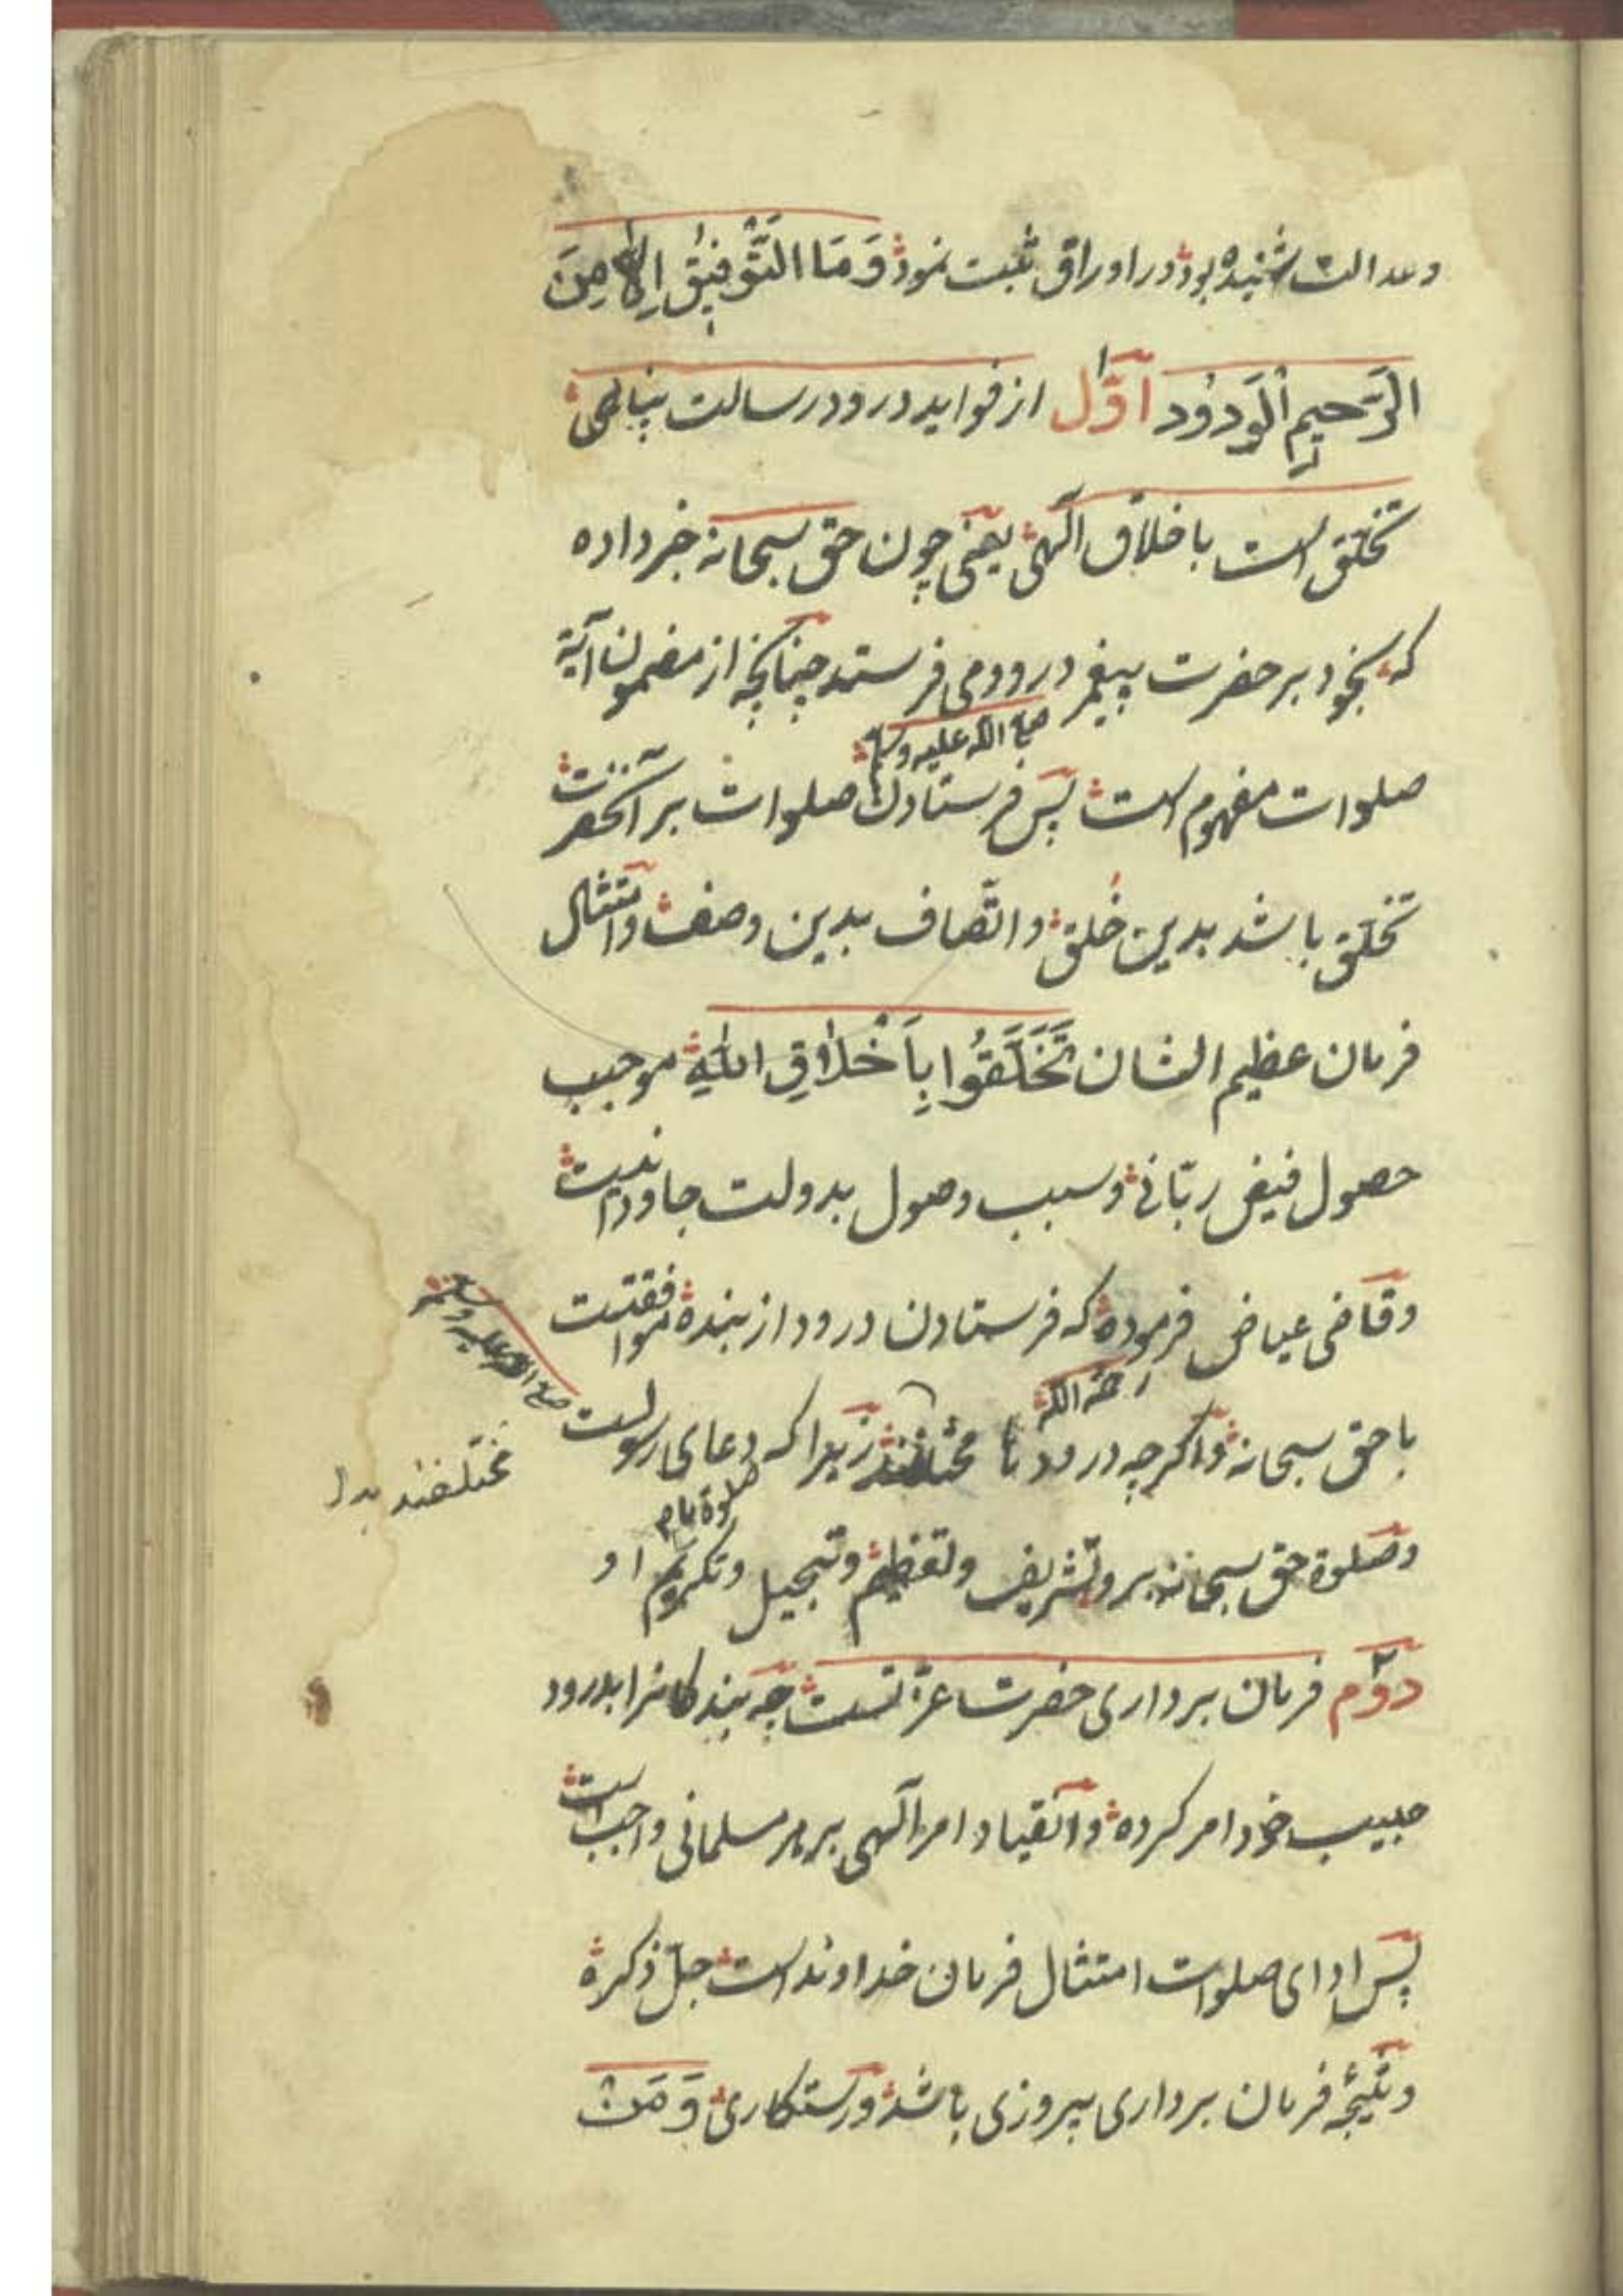 وعدالت شنیده بود در اوراق ثبت نمود وَمَا التَّوْفِیْقُ اِلَّا مِنَ
الرَّحیمِ الْوَدوُد اوّل از فواید درود رسالت پناهی
تخلّق است باخلاق آلهی یعنی چون حق سبحانه خبر داده
که بخود بر حضرت پیغمبر درود می فرستد چنانچه از مضمون آیة
صلی الله علیه وسلم
صلوات مفهوم است پس فرستادن صلوات بر آنحضرت
تخلّق باشد بدین خُلق واتّصاف بدین وصف وامتثال
فرمان عظیم الشان تَخَلَّقُوا بِاَخْلَاقِ اللّٰهِ موجب
حصول فیض ربّانی وسبب وصول بدولت جاودانیست
وقاضی عیاض فرموده که فرستادن درود از بنده موافقتست
رحمه الله
با حق سبحانه واگرچه درودنا مختلفند زیرا که دعای رسولست
صلی الله علیه وسلم
مختلفند بدل
صلوة ما م
وصلوة حق سبحانه برو تشریف وتعظیم وتبجیل وتکریم او
دوّم فرمان برداری حضرت عزّتست چه بندکانرا بدرود
حبیب خود امر کرده وانقیاد امر آلهی بر هر مسلمانی واجب است
پس ادای صلوات امتثال فرمان خداوند است جلّ ذکره
ونتیجۀ فرمان برداری پیروزی باشد ورستکاری وَمَنْ